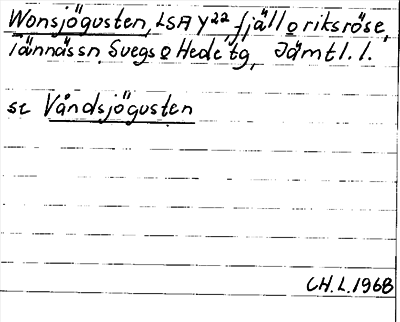 Wonsjögusten, LSA Y22 fjäll o riksröse,
Tännässn, Svegs o Hede tg, Jämtl. l.
se Våndsjögusten
CH.L.1968